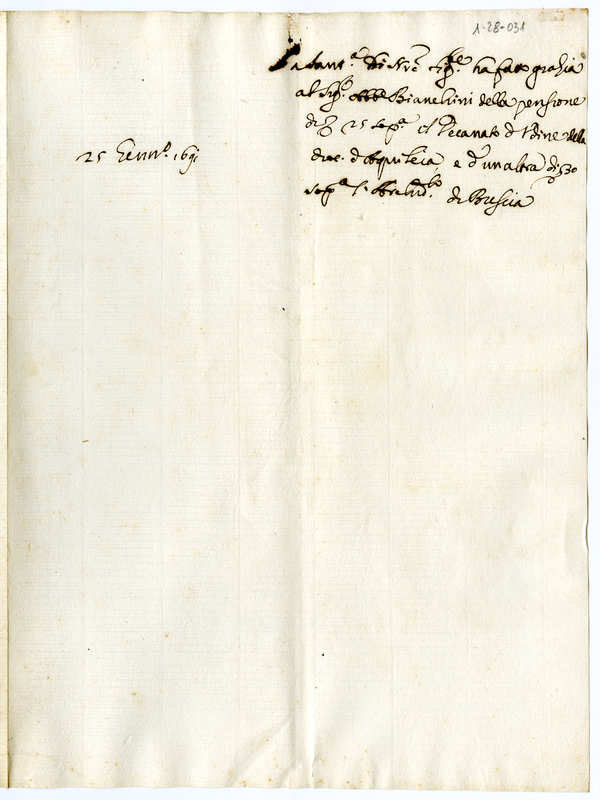 1-28-031
La Sant.a di N.ro Sig.re ha fatto grazia
al Sig.r Abb.e Bianchini della pensione
di 25 sop.a il Decanato d'Udine della
dioc. d'Aquileia e d'un altra di 30
25 Genn.o 169
sop.a l' di Brescia